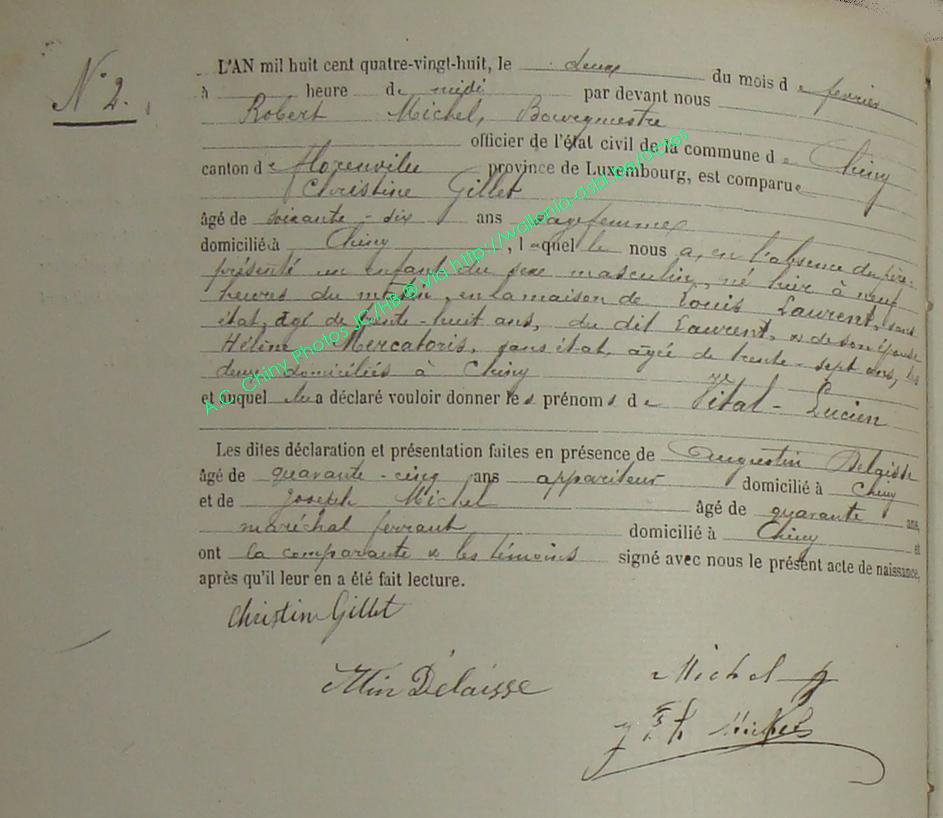 N° 2.
L'AN mil huit cent quatre-vingt-huit, le deux du mois de février
à heure de midi par devant nous
Robert Michel, Bourgmestre
officier de l'état civil de la commune de Chiny
canton de Florenville province de Luxembourg, est comparue
Christine Gillet
âgé de soixante-dix ans sagefemme
domicilié à Chiny, laquelle nous a, en l'absence du père,
présenté un enfant du sexe masculin, né hier à neuf
heures du matin, en la maison de Louis Laurent, sans
état, âgé de trente-huit ans, du dit Laurent, & de son épouse
Hélène Mercatoris, sans état, âgée de trente-sept ans, les
deux domiciliés à Chiny
et auquel elle a déclaré vouloir donner les prénoms de Vital-Lucien
Les dites déclaration et présentation faites en présence de Augustin Delaisse
âgé de quarante-cinq ans appariteur domicilié à Chiny
et de Joseph Michel âgé de quarante ans,
maréchal ferrant domicilié à Chiny et
ont la comparante & les témoins signé avec nous le présent acte de naissance,
après qu'il leur en a été fait lecture.
Christin Gillet
Atin Delaisse
Michel
Jph Michel
A.C. Chiny Photos JC/HB ® via http://wallonia-asbl.be/actes